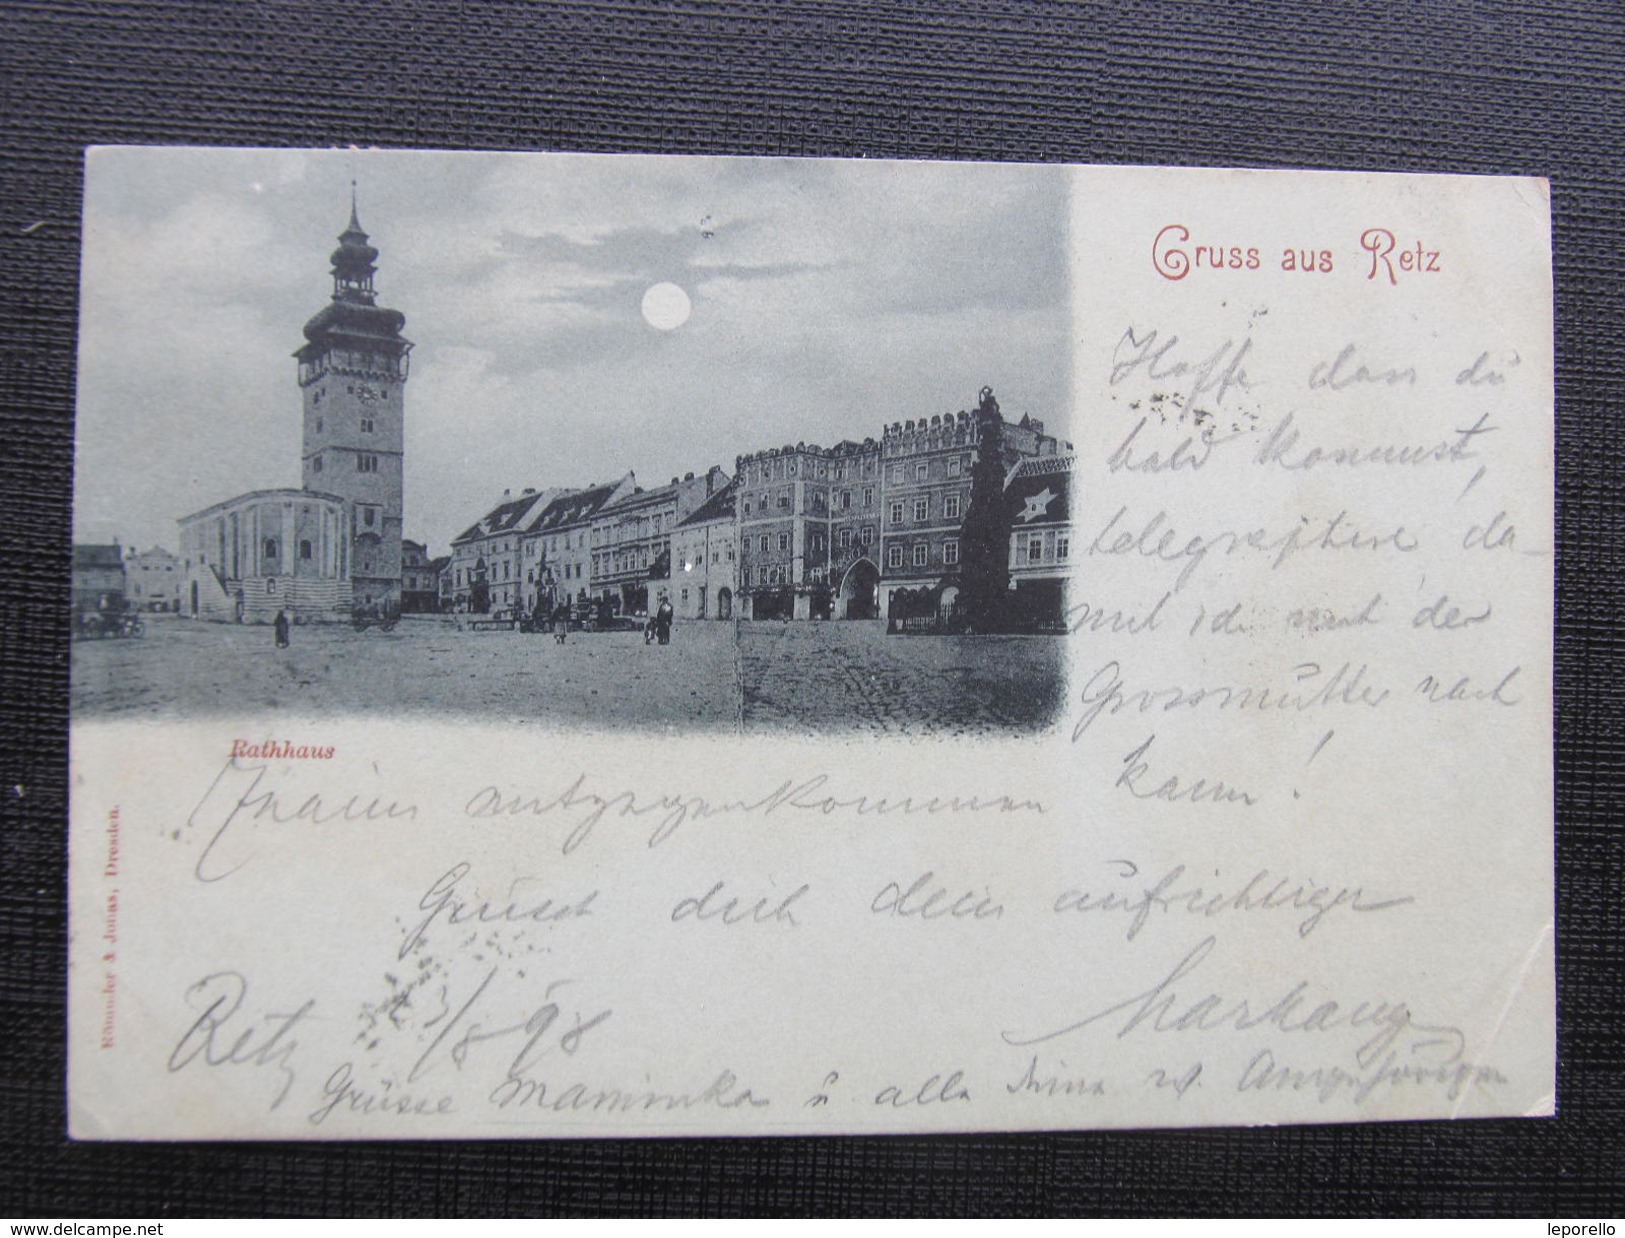 Gruss aus Retz
Hoffe dass du
bald kommst,
telegraphire da-
mit ich mit der
Grossmutter nach
Znaim entgegenkommen kann!
Rathhaus
Grüsst dich dein aufrichtiger
Retz 3/8 98
Grüsse Maminka u alle deine w. Angehörigen
Römmler & Jonas, Dresden.
www.delcampe.net
leporello